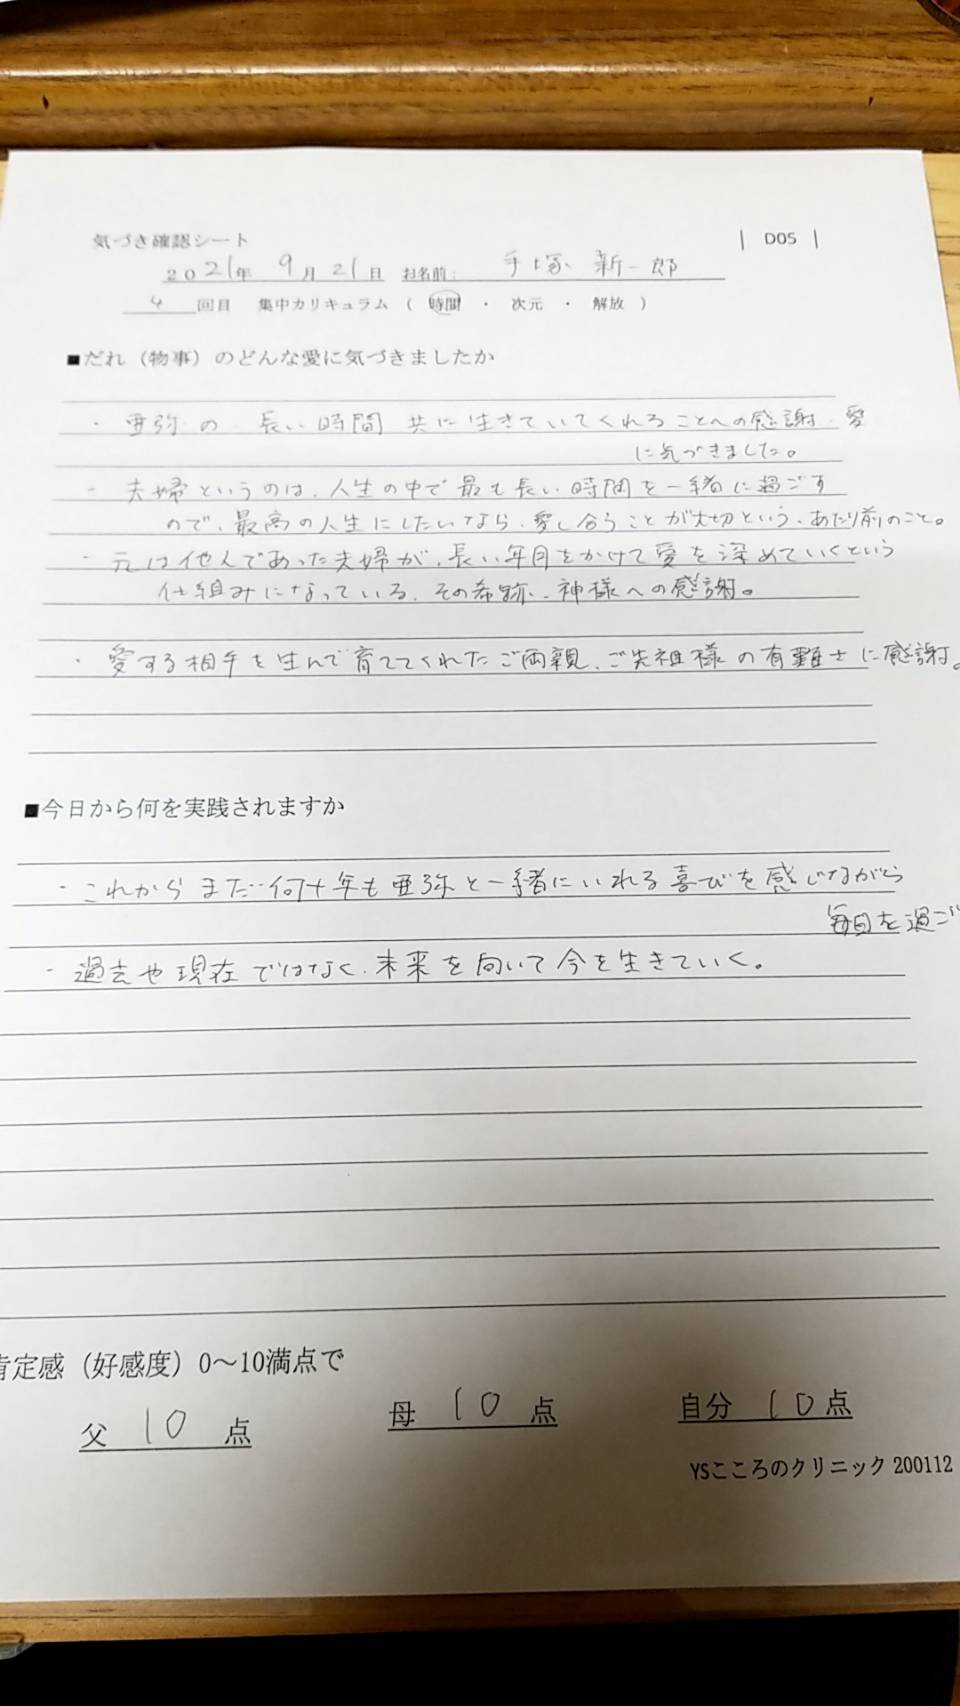 気づき確認シート
| D05 |
2021年 9月 21日 お名前: 手塚 新一郎
4 回目 集中カリキュラム ( 時間 ・ 次元 ・ 解放 )
■だれ(物事)のどんな愛に気づきましたか
・ 亜弥の 長い時間 共に生きていてくれることへの感謝・愛
に気づきました。
・ 夫婦というのは、人生の中で最も長い時間を一緒に過ごす
ので、最高の人生にしたいなら、愛し合うことが大切という、あたり前のこと。
・ 元は他人であった夫婦が、長い年月をかけて愛を深めていくという
仕組みになっている、その奇跡、神様への感謝。
・ 愛する相手を生んで育ててくれたご両親、ご先祖様の有難さに感謝。
■今日から何を実践されますか
・これからまだ何十年も亜弥と一緒にいれる喜びを感じながら
毎日を過ご
・過去や現在ではなく、未来を向いて今を生きていく。
肯定感(好感度)0〜10満点で
父 10 点 母 10 点 自分 10 点
YSこころのクリニック 200112